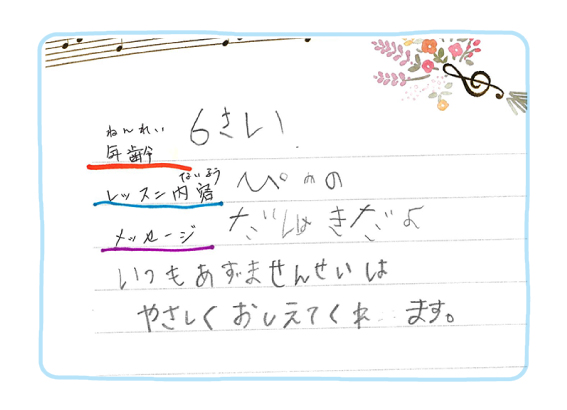 ねんれい
年齢 6さい
ないよう
レッスン内容 ぴあの
メッセージ だいすきだよ
いつもあずませんせいは
やさしくおしえてくれ ます。